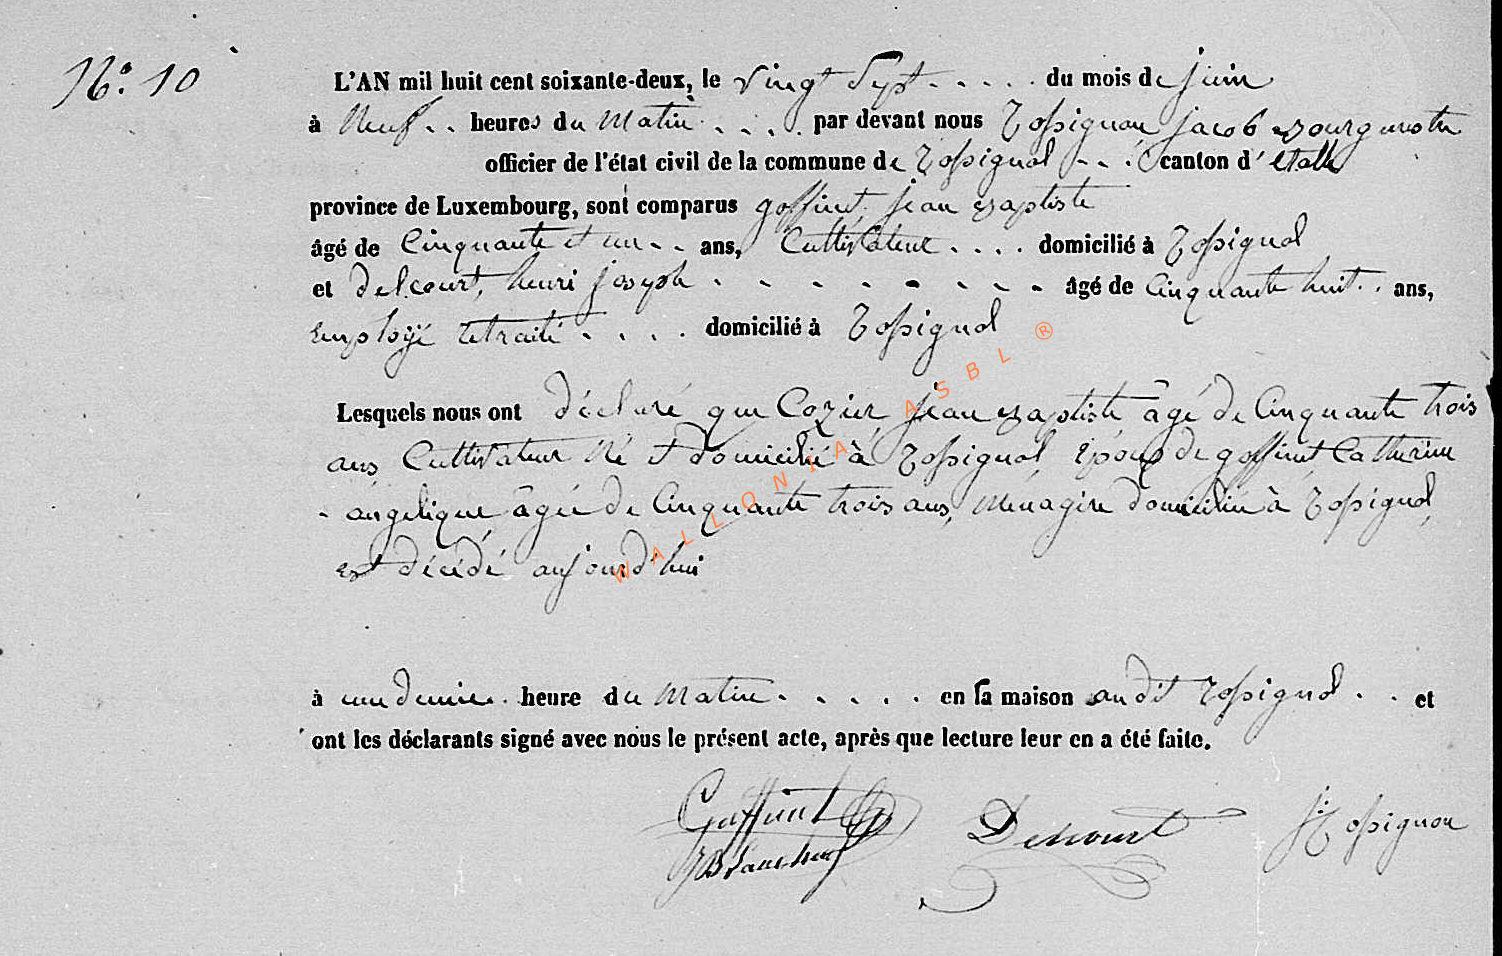 N° 10
L'AN mil huit cent soixante-deux, le vingt Sept du mois de juin
à Neuf heures du Matin par devant nous Rossignon jacob Bourgmestre
officier de l'état civil de la commune de Rossignol canton d'étalle
province de Luxembourg, sont comparus goffinet, jean Baptiste
âgé de Cinquante et un ans, Cultivateur domicilié à Rossignol
et delcourt, henri joseph âgé de Cinquante huit ans,
Employé retraité domicilié à Rossignol
Lesquels nous ont déclaré que Cozier, jean Baptiste âgé de Cinquante trois
ans Cultivateur Né et domicilié à Rossignol, Epoux de goffinet Catherine
angelique, âgée de Cinquante trois ans, Ménagère domiciliée à Rossignol,
est décédé aujourd'hui
à une demie heure du Matin en sa maison audit Rossignol et
ont les déclarants signé avec nous le présent acte, après que lecture leur en a été faite.
Goffinet Delcourt J. Rossignon
WALLONIA ASBL ®